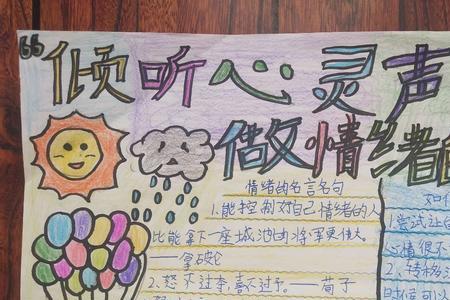 66
倾听心灵声
做情绪
情绪的名言名句
1.能控制好自己情绪的人
比能拿下一座城池的将军更伟大。
——拿破仑
2、怒不过夺,喜不过予。——荀子
如
1.尝试让自
心情很不
2、转移
时候可以